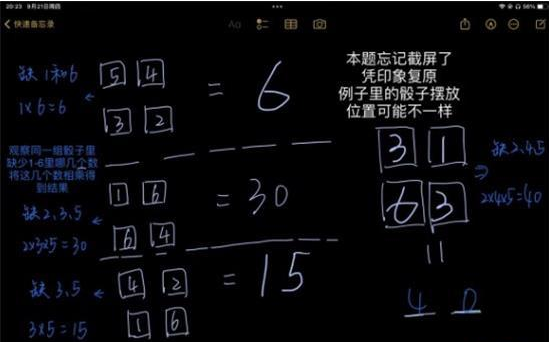 20:23 9月21日周四
56%
快速备忘录
Aa
本题忘记截屏了
凭印象复原
例子里的骰子摆放
位置可能不一样
缺1和6
1x6=6
5 4
3 2
= 6
观察同一组骰子里
缺少1-6里哪几个数
将这几个数相乘得
到结果
缺2,3,5
2x3x5=30
1 6
6 4
= 30
缺3,5
3x5=15
4 2
1 6
= 15
3 1
6 3
缺2,4,5
2x4x5=40
=
4 0